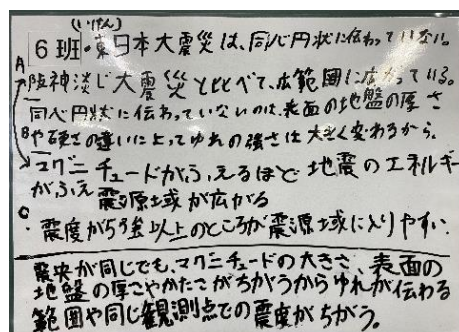 (いけん)
6班・東日本大震災は、同心円状に伝わっていない。
A
阪神淡じ大震災と比べて、広範囲に広がっている。
同心円状に伝わっていないのは、表面の地盤の厚さ
B や硬さの違いによってゆれの強さは大きく変わるから。
・マグニチュードがふえるほど地震のエネルギー
がふえ 震源域が広がる
C
・震度が5強以上のところが震源域に入りやすい
震央が同じでも、マグニチュードの大きさ、表面の
地盤の厚さやかたさがちがうからゆれが伝わる
範囲や同じ観測点での震度がちがう。